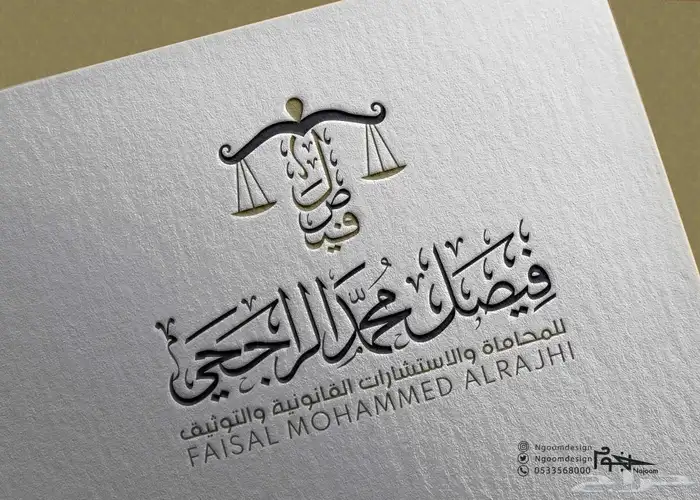 فيصل
فِيصَل مُحمَّد الراجحي
للمحاماة والاستشارات القانونية والتوثيق
FAISAL MOHAMMED ALRAJHI
Ngoomdesign
Ngoomdesign
0533568000
نجوم
Najoom
حراج